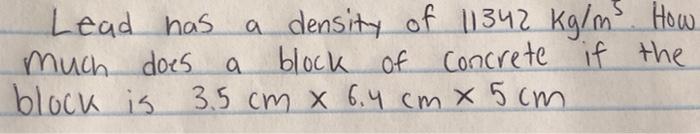 Lead has a density of 11342 Kg/m³. How
much does a block of concrete if the
block is 3.5 cm x 6.4 cm x 5 cm